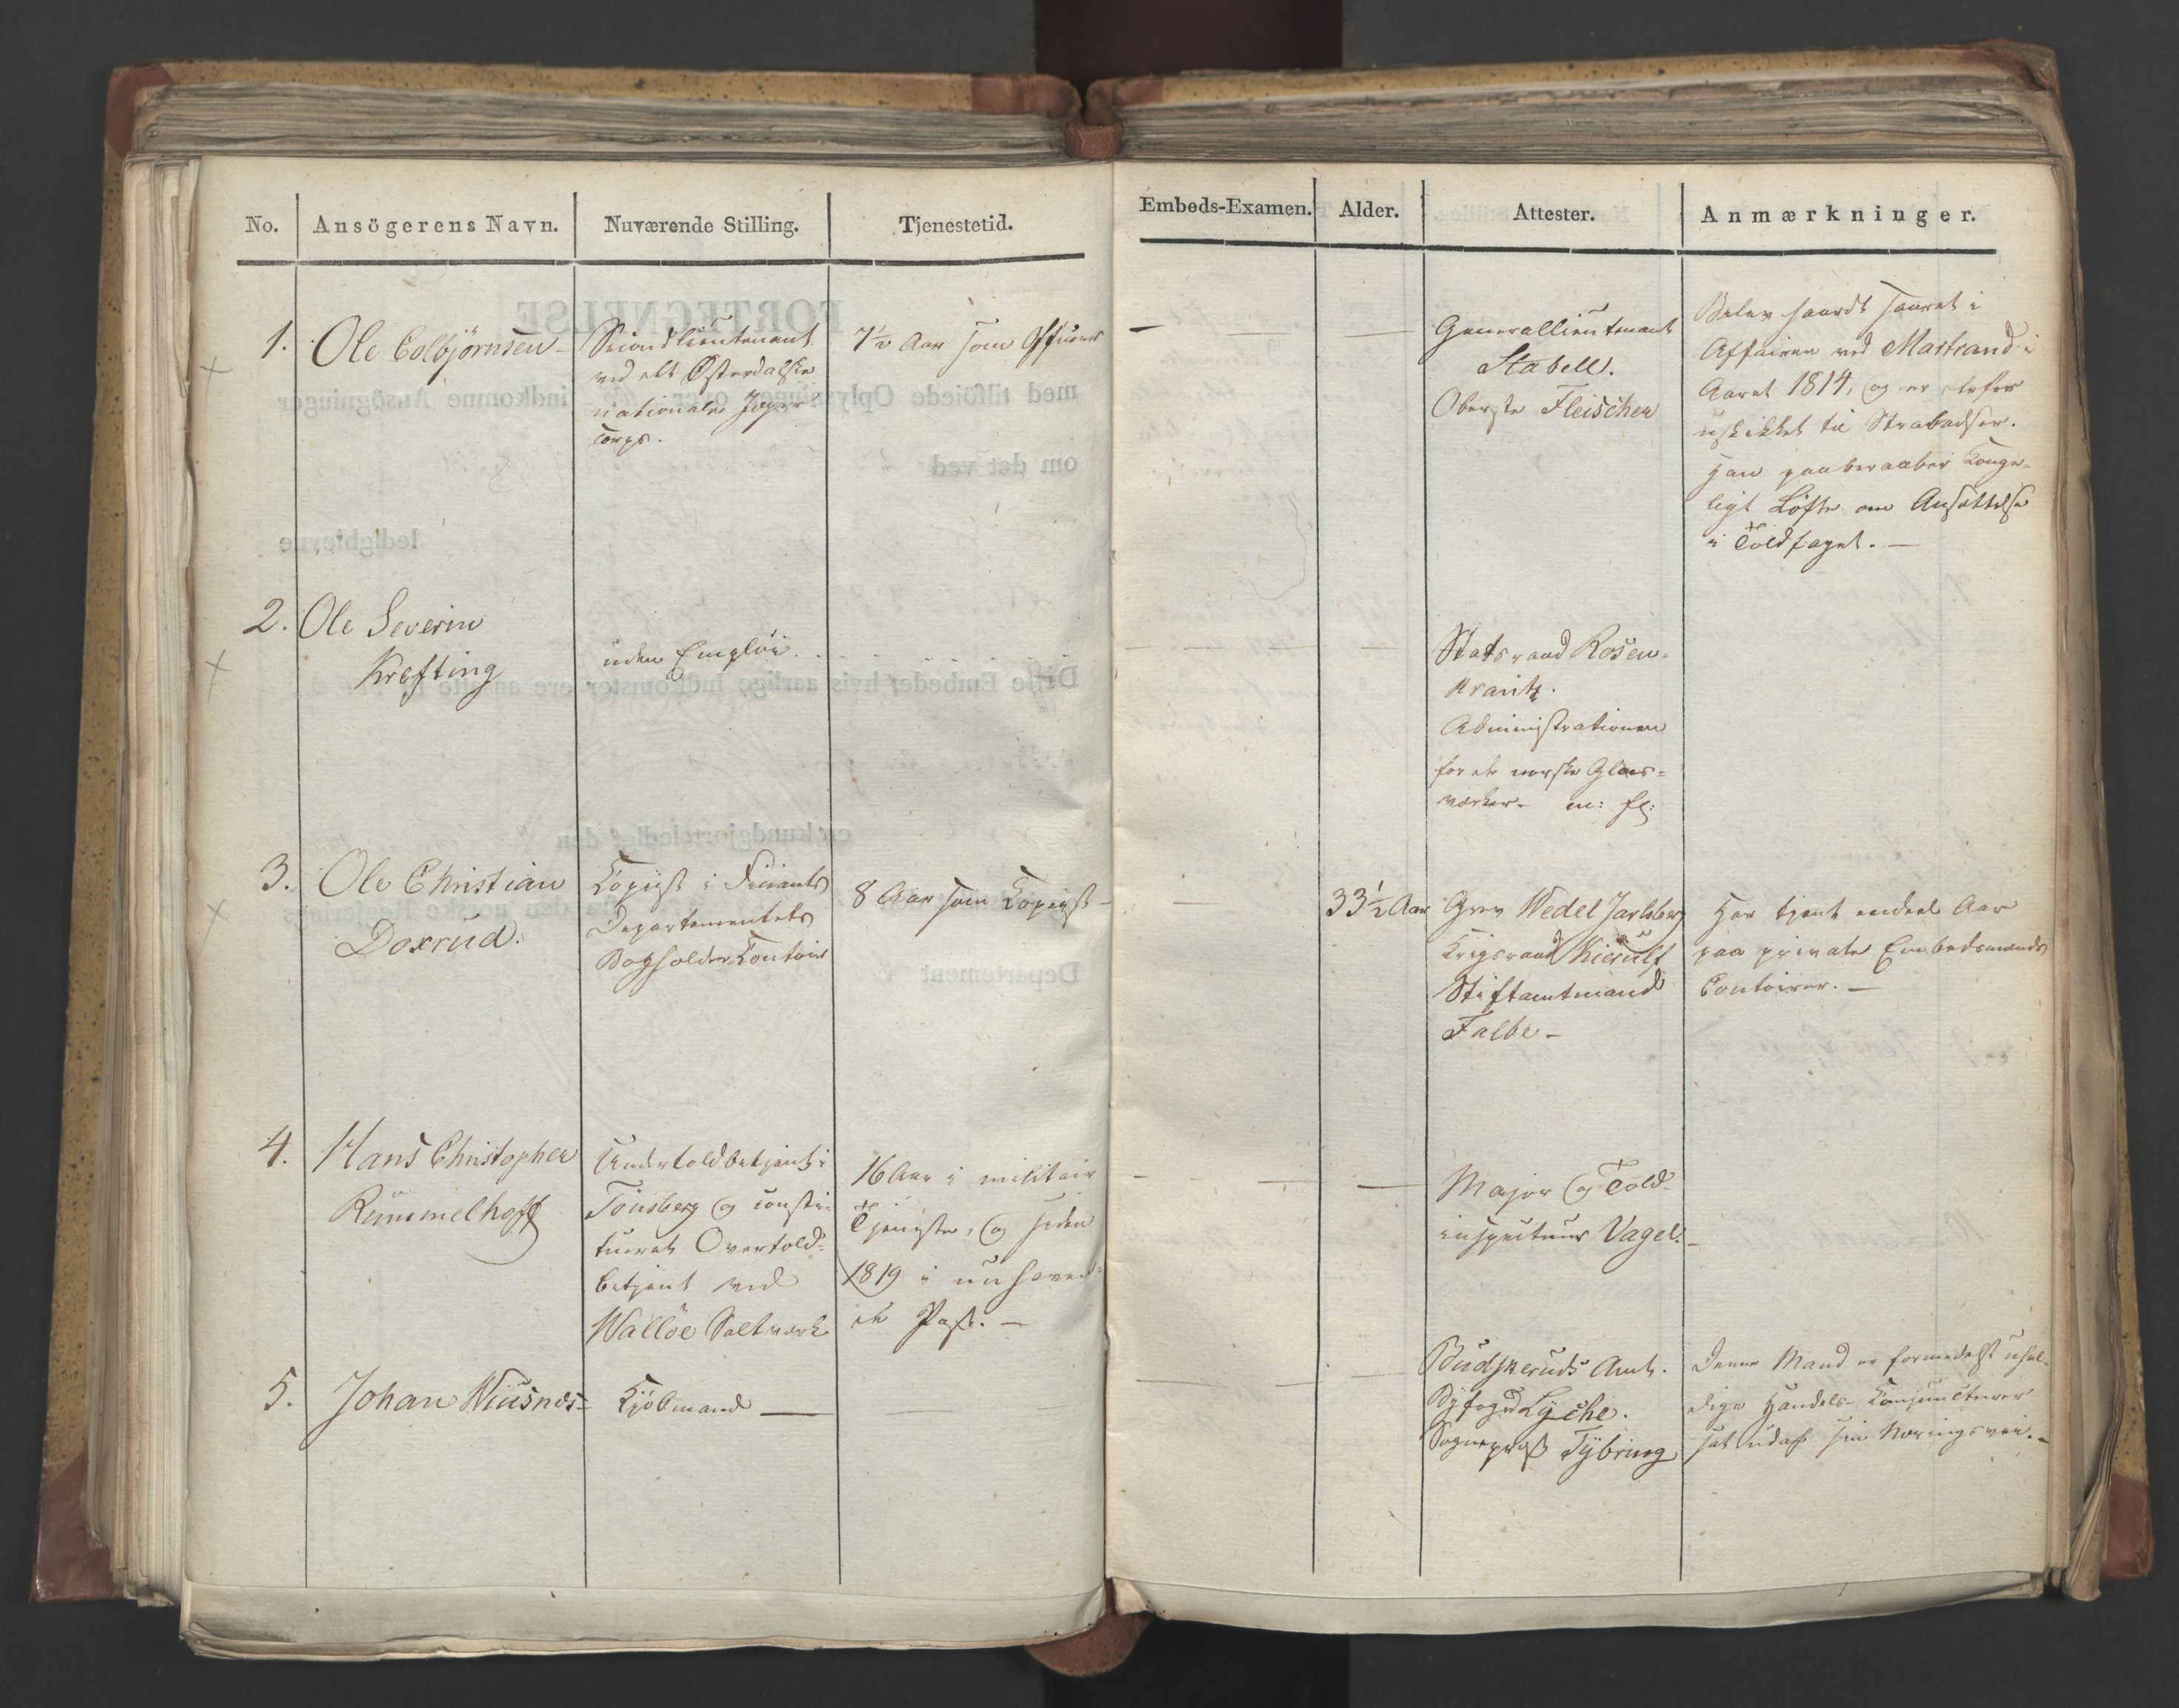 No.
Ansögerens Navn.
Nuværende Stilling.
Tjenestetid.
Embeds-Examen.
Alder.
Attester.
Anmærkninger.
1.
Ole Colbjörnsen
Secondlieutenant
ved det Østerdalske
nationale Jæger
Corps.
7½ Aar som Officeer
Generallieutenant
Stabell.
Oberste Fleischer
Blev haardt saaret i
Affairen ved Mastrand i
Aaret 1814, og er derfor
uskikket til Strabadser.
Han paaberaaber Konge-
ligt Løfte om Ansættelse
i Toldfaget. —
2.
Ole Severin
Krefting
uden Emploi
Statsraad Rosen-
krantz.
Administrationen
for de norske Glas-
værker. m: fl:
3.
Ole Christian
Doxrud.
Kopiist i Finants
Departementets
Bogholder Contoir
8 Aar som Kopiist
33½ Aar
Grev Wedel Jarlsberg
Krigsraad Kierulf
Stiftamtmand
Falbe —
Har tjent endeel Aar
paa private Embedsmænds
Contoirer. —
4.
Hans Christopher
Rummelhoff
Undertoldbetjent i
Tönsberg og consti-
tueret Overtold-
betjent ved
Wallöe Saltværk
16 Aar i militair
Tjeneste, og siden
1819 i nuhaven-
de Post. —
Major og Told-
inspecteur Vagel. —
5.
Johan Wiisnes
Kjöbmand —
Budskeruds Amt.
Byfoged Lyche.
Sogneprest Tybring
Denne Mand er formedelst uhel-
dige Handels-Conjuncturer
sat udaf sin Næringsvei. —